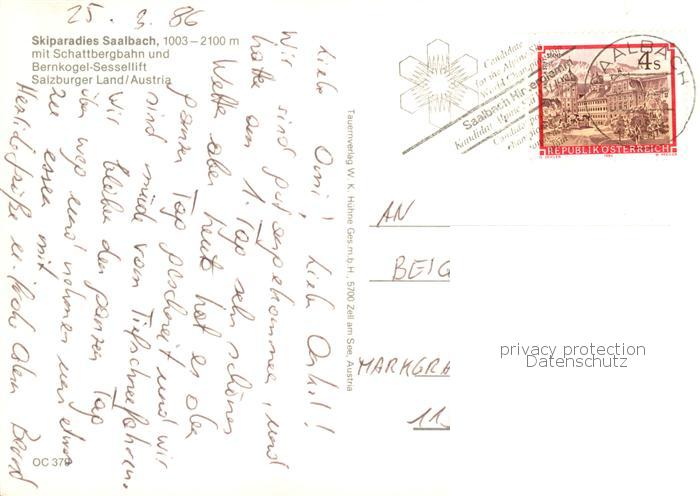 25. 3. 86
Skiparadies Saalbach, 1003–2100 m
mit Schattbergbahn und
Bernkogel-Sessellift
Salzburger Land/Austria
Liebe Omi! Liebe
Wir sind gut angekommen, und
hatten am 1. Tag sehr schönes
Wetter aber heute hat es den
ganzen Tag geschneit und wir
sind müde vom Tiefschneefahren.
Wir bleiben den ganzen Tag
über weg und nehmen uns etwas
zu essen mit
Herzliche Grüße u. frohe Ostern Bernd
OC 379
Tauernverlag W. K. Hühne Ges.m.b.H., 5700 Zell am See, Austria
Candidate
for the Alpine Ski
World Championships
Saalbach Hinterglemm
Kandidat Alpine
SAALBACH
4 S
REPUBLIK ÖSTERREICH
AN
BEIG
MARKGRA
11
privacy protection
Datenschutz